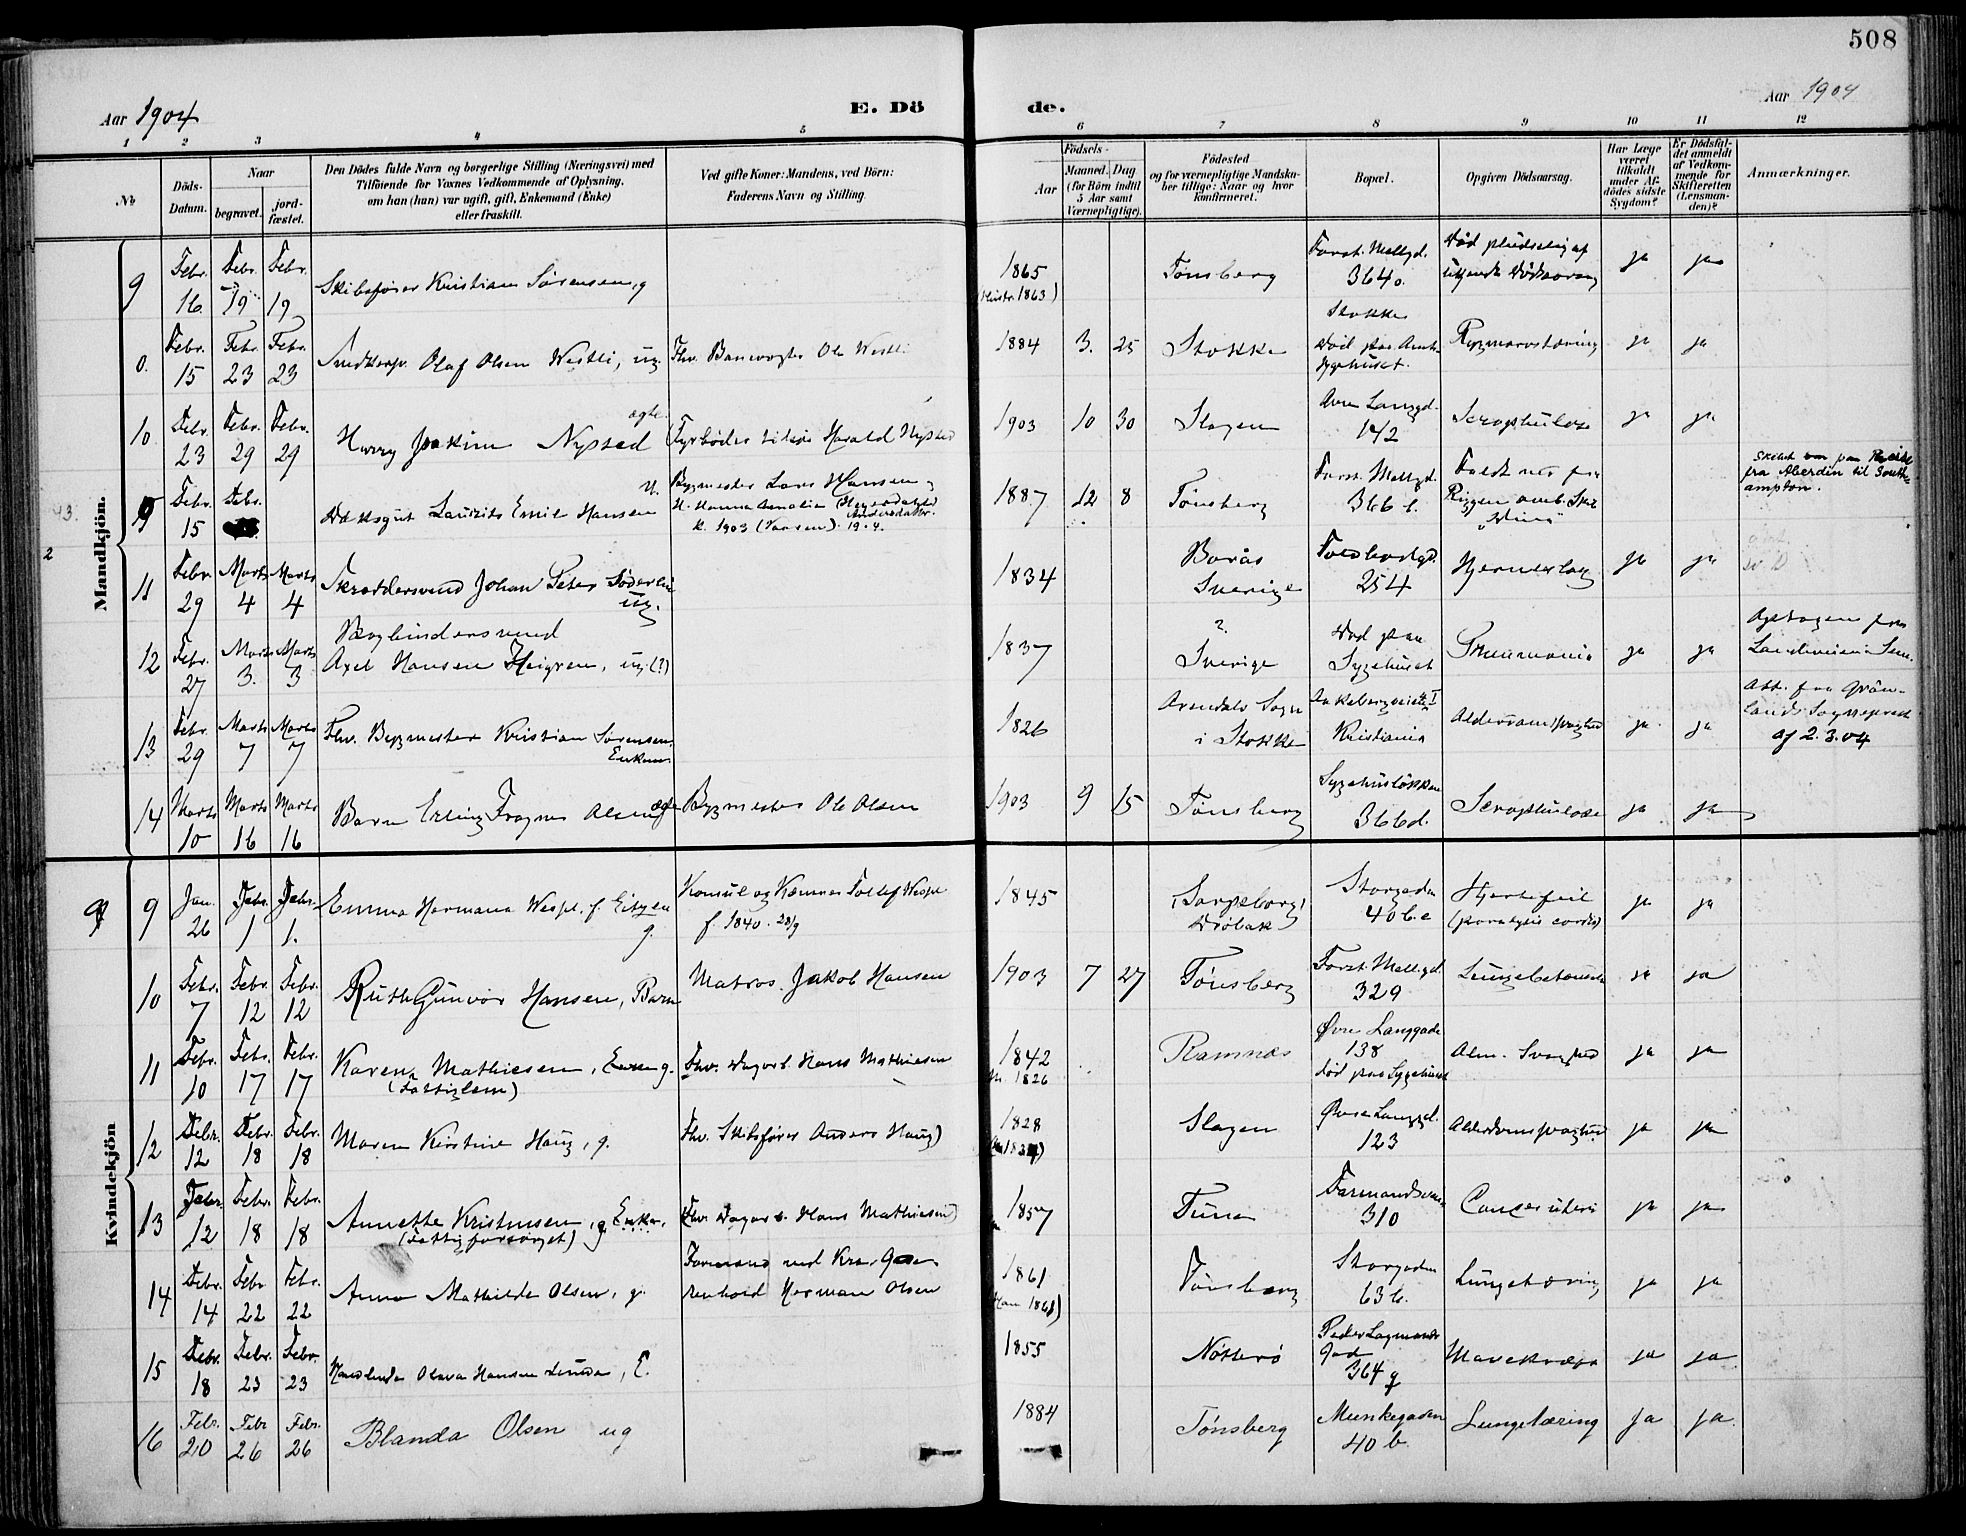 508
Aar 1904
E. Dö
de.
Aar 1904
1 2 3 4 5 6 7 8 9 10 11 12
Nö
Döds-
Datum.
Naar
begravet.
jord-
fæstet.
Den Dödes fulde Navn og borgerlige Stilling (Næringsvei) med
Tilföiende for Voxnes Vedkommende af Oplysning,
om han (hun) var ugift, gift, Enkemand (Enke)
eller fraskilt.
Ved gifte Koner: Mandens, ved Börn:
Faderens Navn og Stilling.
Födsels-
Aar
Maaned. Dag
(for Börn indtil
5 Aar samt
Værnepligtige).
Födested
og for værnepligtige Mandska-
ber tillige: Naar og hvor
konfirmeret.
Bopæl.
Opgiven Dödsaarsag.
Har Læge
været
tilkaldt
under Af-
dödes sidste
Sygdom?
Er Dödsfal-
det anmeldt
af Vedkom-
mende for
Skifteretten
(Lensman-
den)?
Anmærkninger.
Mandkjön.
9 Febr. 16 Febr. 19 Febr. 19 Skibsfører Kristian Sørensen, g 1865 (Hustr. 1863) Tønsberg Forst. Mellgd. 364o. Død pludselig af ukjendt Dødsaarsag ja ja
0. Febr. 15 Febr. 23 Febr. 23 Olaf Olsen Westli, ug. Fhv. Banevogter Ole Westli 1884 3. 25 Stokke Stokke Død paa Amts Sygehuset. Rygmarvstæring ja ja
10 Febr. 23 Febr. 29 Febr. 29 Harry Joakim Nysted ægte. Fyrbøder Harald Nysted 1903 10 30 Slagen Øvre Langgd. 142 Scrophulose ja ja
Febr. 15 Febr. Dæksgut Lauritz Emil Hansen u. Bygmester Lars Hansen
H. Hanna Amalie
k. 1903 1904.
1887 12 8 Tønsberg Forst. Mellgd. 366 b. Faldt ned fra Riggen omb. Skib
Skibet var paa Reise
fra Aberdin til South-
ampton.
43.
2
11 Febr. 29 Marts 4 Marts 4 Skræddersvend Johan Peter ug. 1834 Borås Sverige Toldbodgd. 254 Hjerneslag ja ja
12 Febr. 27 Marts 3. Marts 3 Bogbindersvend
Axel Hansen Heigren, ug (?) 1837 ? Sverige Død paa Sygehuset Pneumonia ja ja
13 Febr. 29 Marts 7 Marts 7 Fhv. Bygmester Kristian Sørensen, Enkem. 1826 Arendals Sogn i Stokke Kristiania Alderdomssvaghed ja ja
Att. fra Grøn-
lands Sogneprest
af 2.3.04
14 Marts 10 Marts 16 Marts 16 Barn Erling Olsen ægte Bygmester Ole Olsen 1903 9 15 Tønsberg Sygehusløkken 366d. Scrophulose ja ja
Kvindekjön
9 Jan. 26 Febr. 1 Febr. 1. Emma Hermana f. Eitzen g. Konsul og Kæmner
f. 1840. 28/9 1845 (Sarpsborg) Drøbak Storgaden 40 b.c Hjertefeil (paralysis cordis) ja ja
10 Febr. 7 Febr. 12 Febr. 12 Ruth Gunvor Hansen, Barn Matros Jakob Hansen 1903 7 27 Tønsberg Forst. Mellgd. 329 ja ja
11 Febr. 10 Febr. 17 Febr. 17 Karen Mathiesen, g. (Fattiglem) Fhv. Dagarb. Hans Mathiesen 1842 M. 1826 Ramnæs Øvre Langgade 138 død paa Sygehuset Alm. Svaghed ja ja
12 Febr. 12 Febr. 18 Febr. 18 Maren Kirstine Haug, g. Fhv. Skibsfører Anders Haug 1828 Slagen Øvre Langgd. 123 Alderdomssvaghed ja ja
13 Febr. 12 Febr. 18 Febr. 18 Annette Kristensen, g Enke, (Fattigforsørget) (Fhv. Dagarb. Hans Mathiesen) 1857 Tune Farmandsveien 310 Cancer uteri ja ja
14 Febr. 14 Febr. 22 Febr. 22 Anna Mathilde Olsen, g. Formand ved
renhold Herman Olsen 1861 Tønsberg Storgaden 63 b. Lungetæring ja ja
15 Febr. 18 Febr. 23 Febr. 23 Olava Hansen E. 1855 Nøtterø Peder Lagmands Gade 364 g Mavekræft ja ja
16 Febr. 20 Febr. 26 Febr. 26 Blanda Olsen ug 1884 Tønsberg Munkegaden 40 b. Lungetæring ja ja.